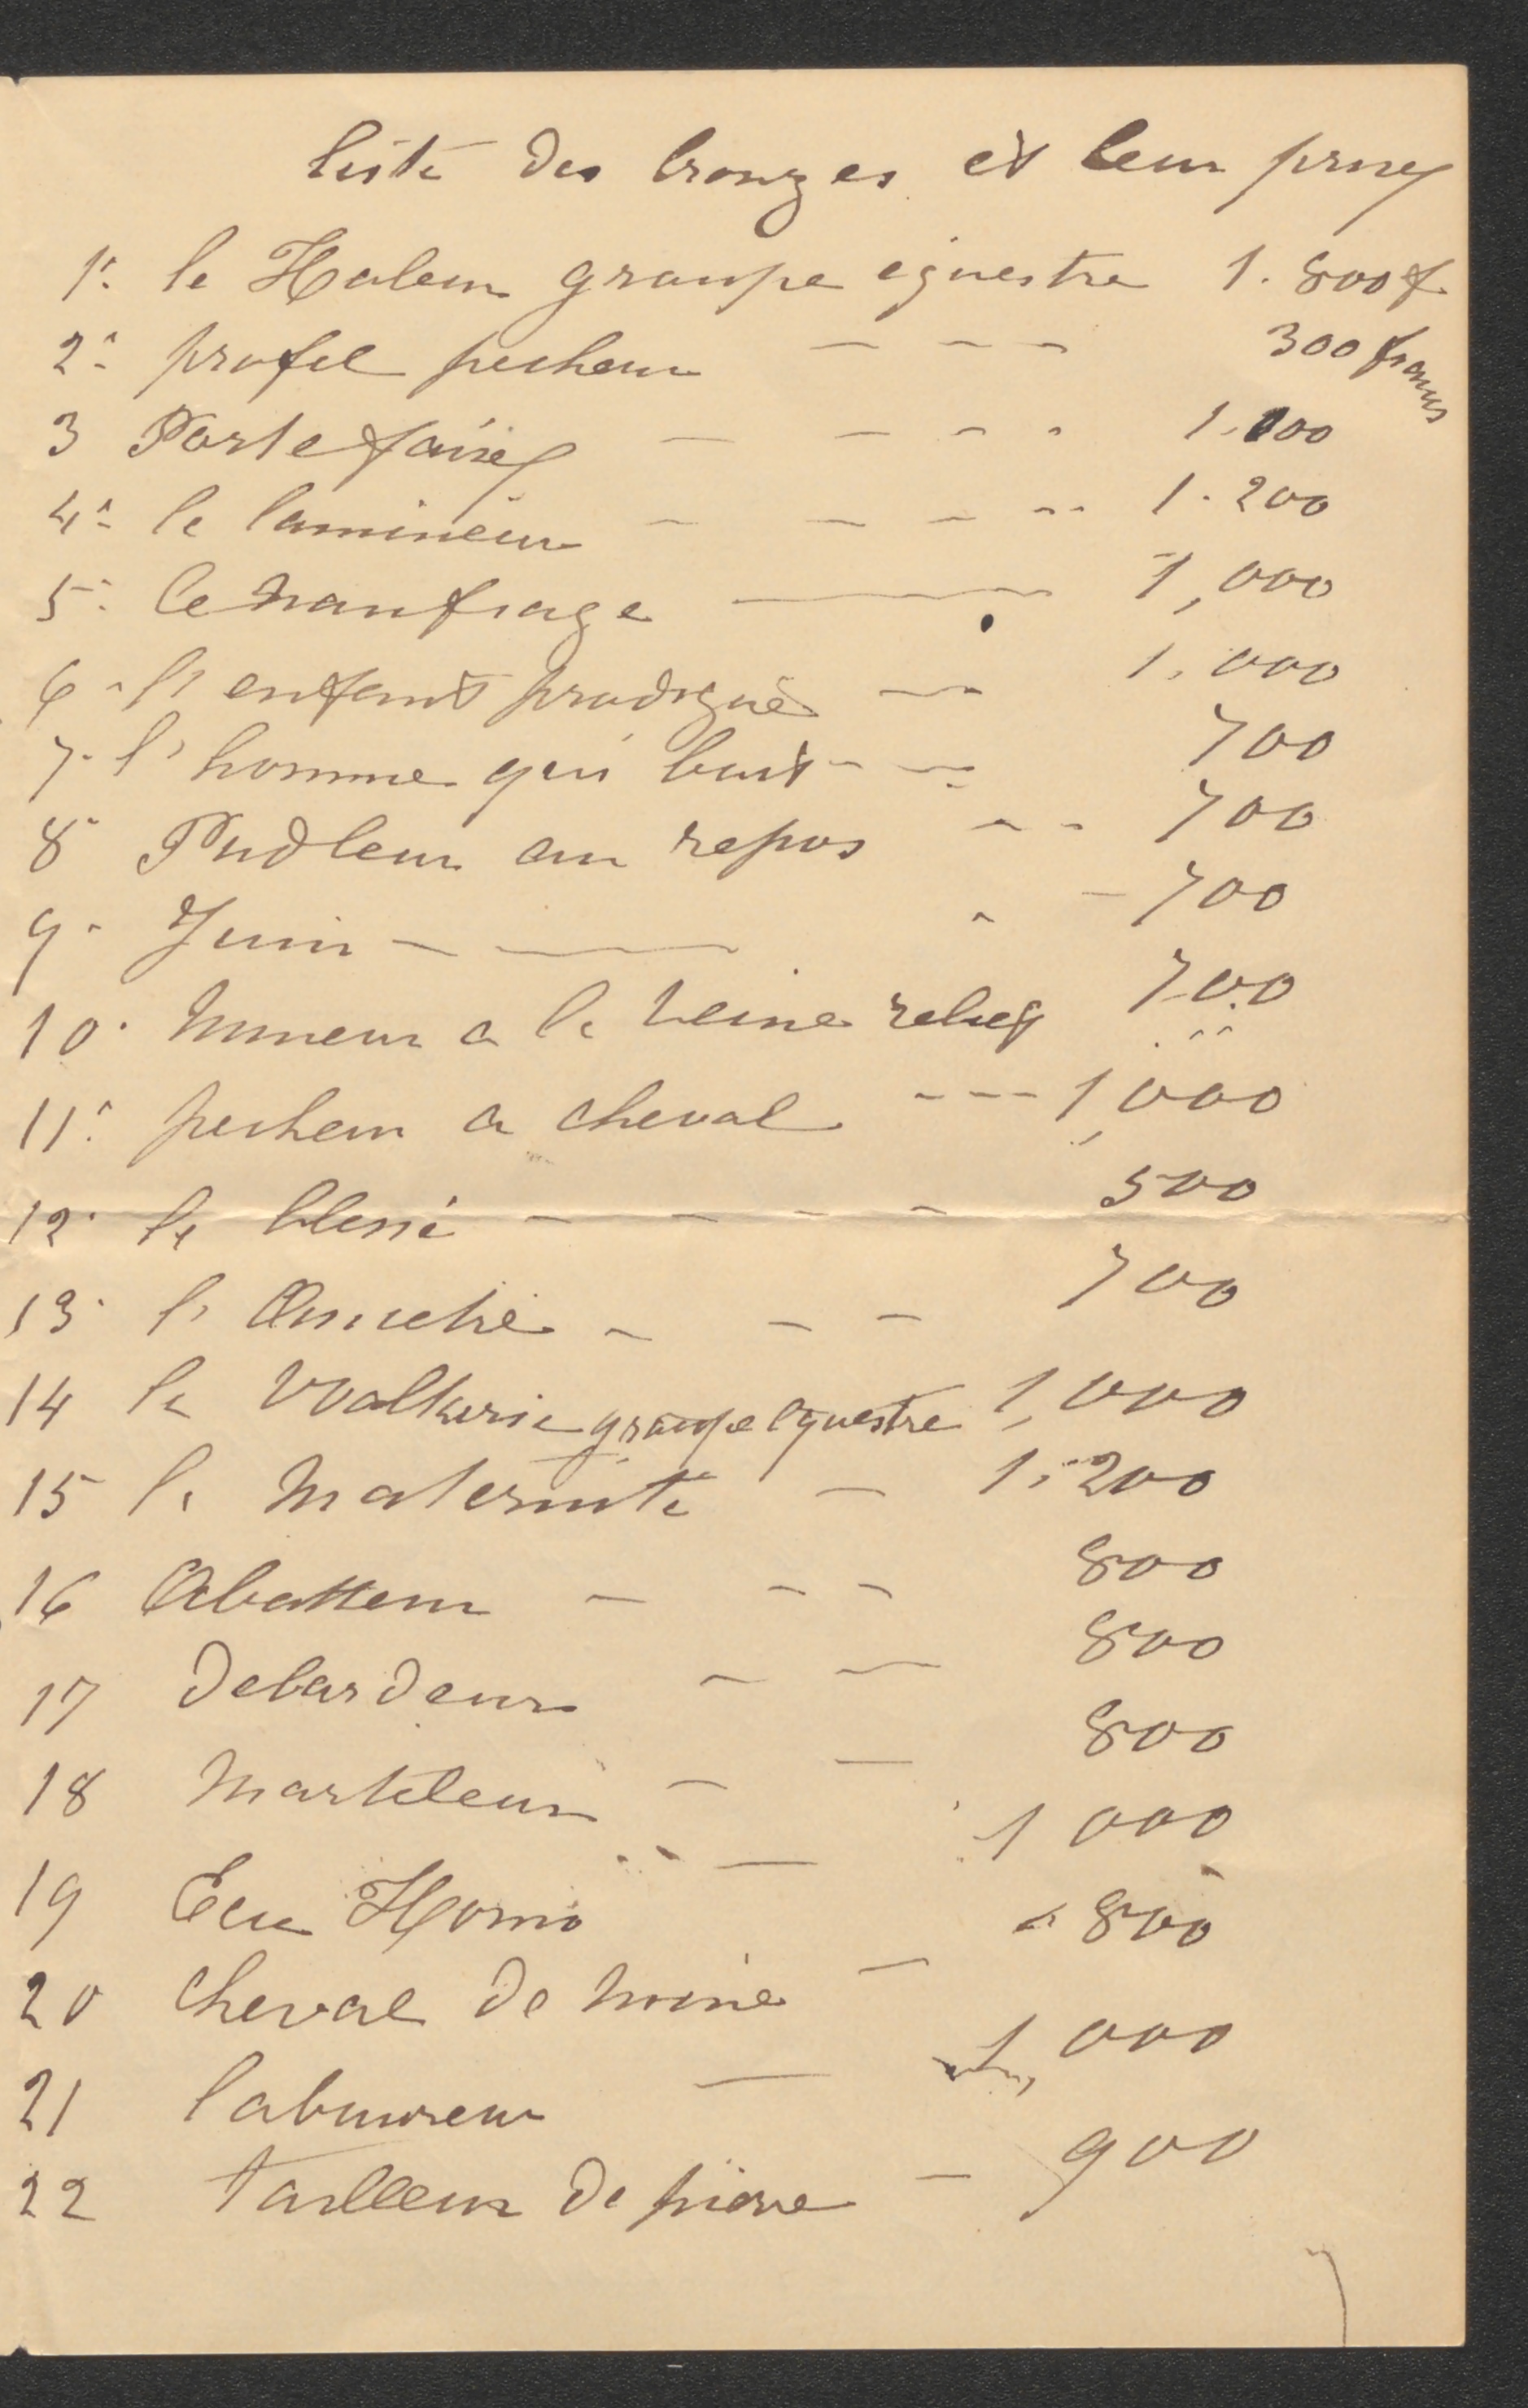 liste des bronzes et leur prix
1º le Haleur groupe equestre 1.800 f
2º profil pecheur - - - 300 francs
3 Porte faix - - - - 1.100
4º le lamineur - - - - 1.200
5º le naufrage - 1,000
6 - l'enfant prodigue - 1.000
7 - l'homme qui boit - - 700
8º Pudleur au repos - - 700
9 - Juin - - 700
10 - Mineur a la veine relief 700
11º pecheur a cheval - - - 1,000
12 - le blessé - - - - 500
13 - l'Ancetre - - - 700
14 la Walkurie groupe equestre 1,000
15 la Maternité - 1.200
16 Abatteur - - - 800
17 Debardeur - - 800
18 Marteleur - - 800
19 Ecce Homo - 1 000
20 Cheval de mine - 800
21 laboureur - 1,000
22 tailleur de pierre - 900